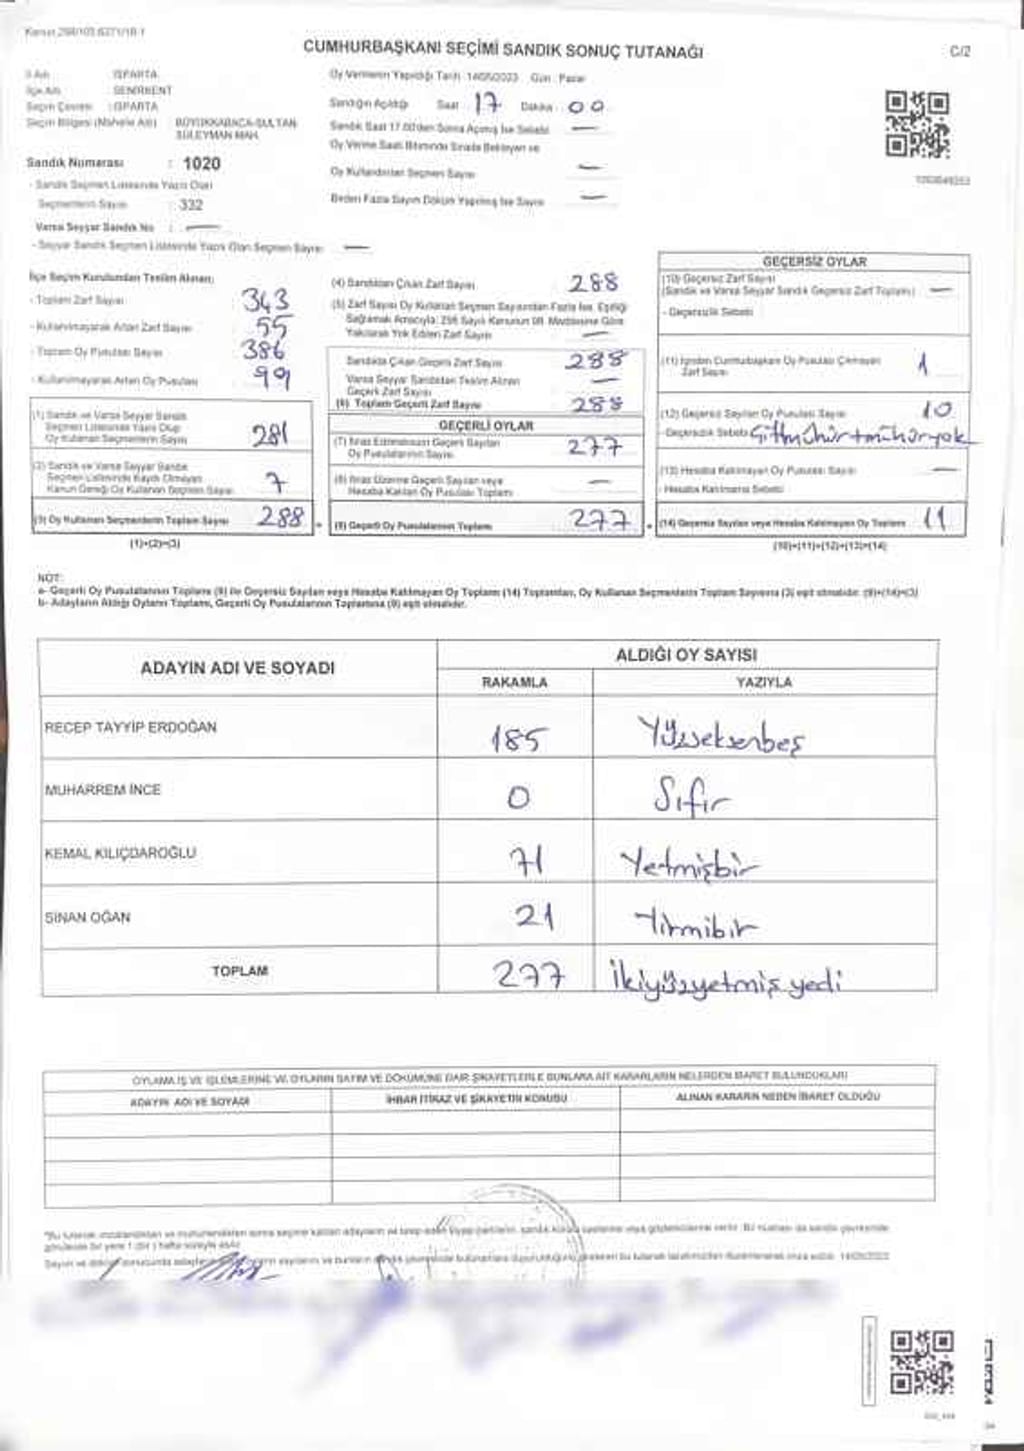 Kanun 298/105,6271/18-1
CUMHURBAŞKANI SEÇİMİ SANDIK SONUÇ TUTANAĞI
C/2
İl Adı : ISPARTA
İlçe Adı : SENİRKENT
Seçim Çevresi : ISPARTA
Seçim Bölgesi (Mahalle Adı) BÜYÜKKABACA-SULTAN
SÜLEYMAN MAH.
Sandık Numarası : 1020
- Sandık Seçmen Listesinde Yazılı Olan
Seçmenlerin Sayısı : 332
Varsa Seyyar Sandık No : —
- Seyyar Sandık Seçmen Listesinde Yazılı Olan Seçmen Sayısı —
Oy Vermenin Yapıldığı Tarih 14/05/2023 Gün : Pazar
Sandığın Açıldığı Saat 17 Dakika 00
Sandık Saat 17.00'den Sonra Açılmış İse Sebebi —
Oy Verme Saati Bitiminde Sırada Bekleyen ve
Oy Kullandırılan Seçmen Sayısı —
Birden Fazla Sayım Döküm Yapılmış İse Sayısı —
İlçe Seçim Kurulundan Teslim Alınan;
- Toplam Zarf Sayısı 343
- Kullanılmayarak Artan Zarf Sayısı 55
- Toplam Oy Pusulası Sayısı 386
- Kullanılmayarak Artan Oy Pusulası 99
(1) Sandık ve Varsa Seyyar Sandık
Seçmen Listesinde Yazılı Olup
Oy Kullanan Seçmenlerin Sayısı 281
(2) Sandık ve Varsa Seyyar Sandık
Seçmen Listesinde Kayıtlı Olmayan
Kanun Gereği Oy Kullanan Seçmen Sayısı 7
(3) Oy Kullanan Seçmenlerin Toplam Sayısı 288
(1)+(2)=(3)
(4) Sandıktan Çıkan Zarf Sayısı 288
(5) Zarf Sayısı Oy Kullanan Seçmen Sayısından Fazla İse, Eşitliği
Sağlamak Amacıyla, 298 Sayılı Kanunun 98. Maddesine Göre
Yakılarak Yok Edilen Zarf Sayısı —
Sandıkta Çıkan Geçerli Zarf Sayısı 288
Varsa Seyyar Sandıktan Teslim Alınan
Geçerli Zarf Sayısı —
(6) Toplam Geçerli Zarf Sayısı 288
GEÇERLİ OYLAR
(7) İtiraz Edilmeksizin Geçerli Sayılan
Oy Pusulalarının Sayısı 277
(8) İtiraz Üzerine Geçerli Sayılan veya
Hesaba Katılan Oy Pusulası Toplamı —
(9) Geçerli Oy Pusulalarının Toplamı 277
GEÇERSİZ OYLAR
(10) Geçersiz Zarf Sayısı
(Sandık ve Varsa Seyyar Sandık Geçersiz Zarf Toplamı) —
- Geçersizlik Sebebi
(11) İçinden Cumhurbaşkanı Oy Pusulası Çıkmayan
Zarf Sayısı 1
(12) Geçersiz Sayılan Oy Pusulası Sayısı 10
- Geçersizlik Sebebi Çiftmühür+mühüryok
(13) Hesaba Katılmayan Oy Pusulası Sayısı —
- Hesaba Katılmama Sebebi
(14) Geçersiz Sayılan veya Hesaba Katılmayan Oy Toplamı 11
(10)+(11)+(12)+(13)=(14)
NOT:
a- Geçerli Oy Pusulalarının Toplamı (9) ile Geçersiz Sayılan veya Hesaba Katılmayan Oy Toplamı (14) Toplamları, Oy Kullanan Seçmenlerin Toplam Sayısına (3) eşit olmalıdır. (9)+(14)=(3)
b- Adayların Aldığı Oyların Toplamı, Geçerli Oy Pusulalarının Toplamına (9) eşit olmalıdır.
ADAYIN ADI VE SOYADI
ALDIĞI OY SAYISI
RAKAMLA YAZIYLA
RECEP TAYYİP ERDOĞAN 185 Yüzseksenbeş
MUHARREM İNCE 0 Sıfır
KEMAL KILIÇDAROĞLU 71 Yetmişbir
SİNAN OĞAN 21 Yirmibir
TOPLAM 277 İkiyüzyetmiş yedi
OYLAMA İŞ VE İŞLEMLERİNE VE OYLARIN SAYIM VE DÖKÜMÜNE DAİR ŞİKAYETLERLE BUNLARA AİT KARARLARIN NELERDEN İBARET BULUNDUKLARI
ADAYIN ADI VE SOYADI İHBAR İTİRAZ VE ŞİKAYETİN KONUSU ALINAN KARARIN NEDEN İBARET OLDUĞU